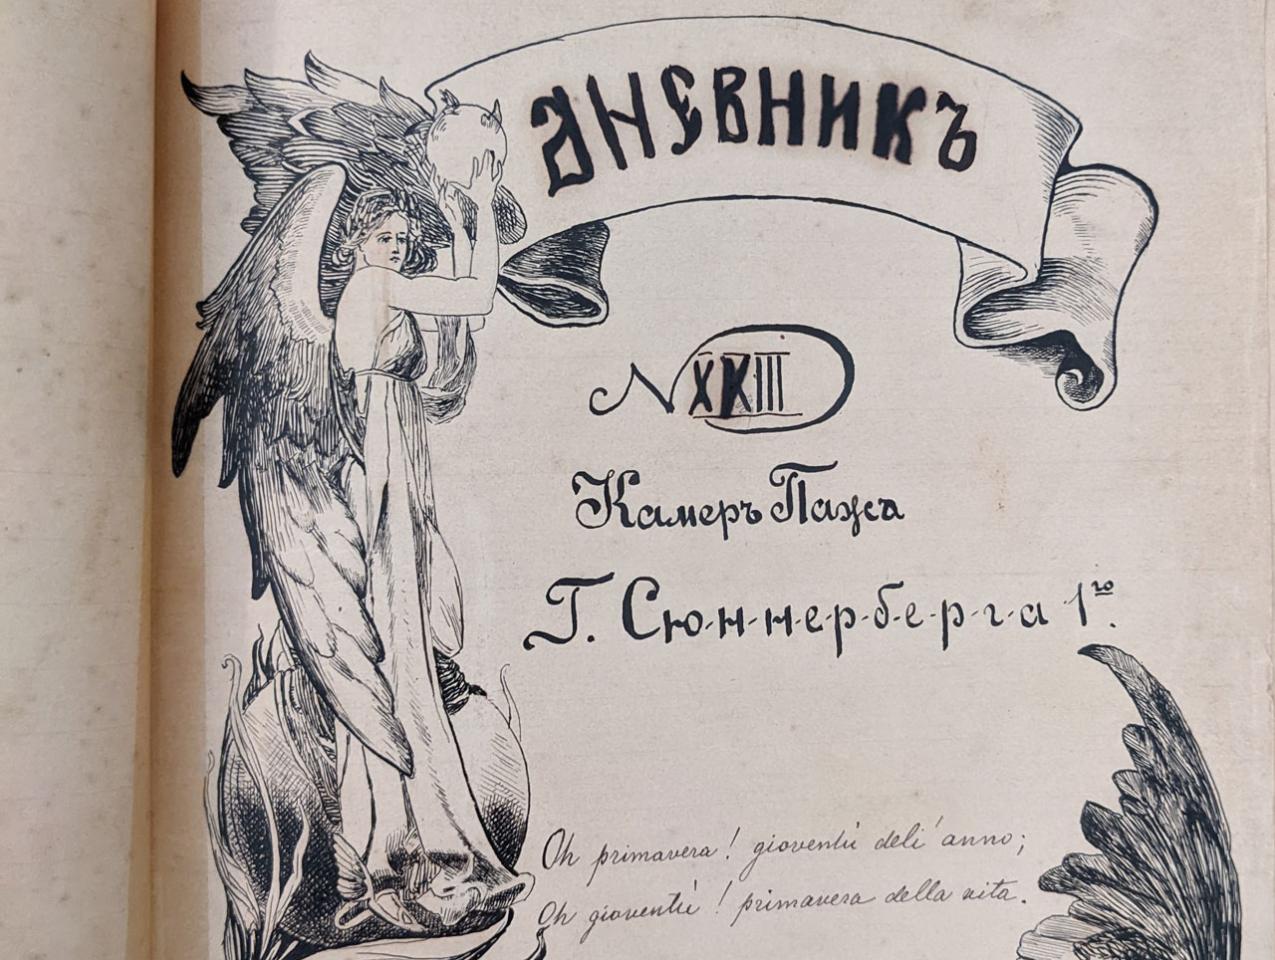 ДНЕВНИКЪ
N XXIII
Камеръ Пажа
Г. Сю-н-н-е-р-б-е-р-г-а 1го.
Oh primavera! gioventù dell' anno;
Oh gioventù! primavera della vita.